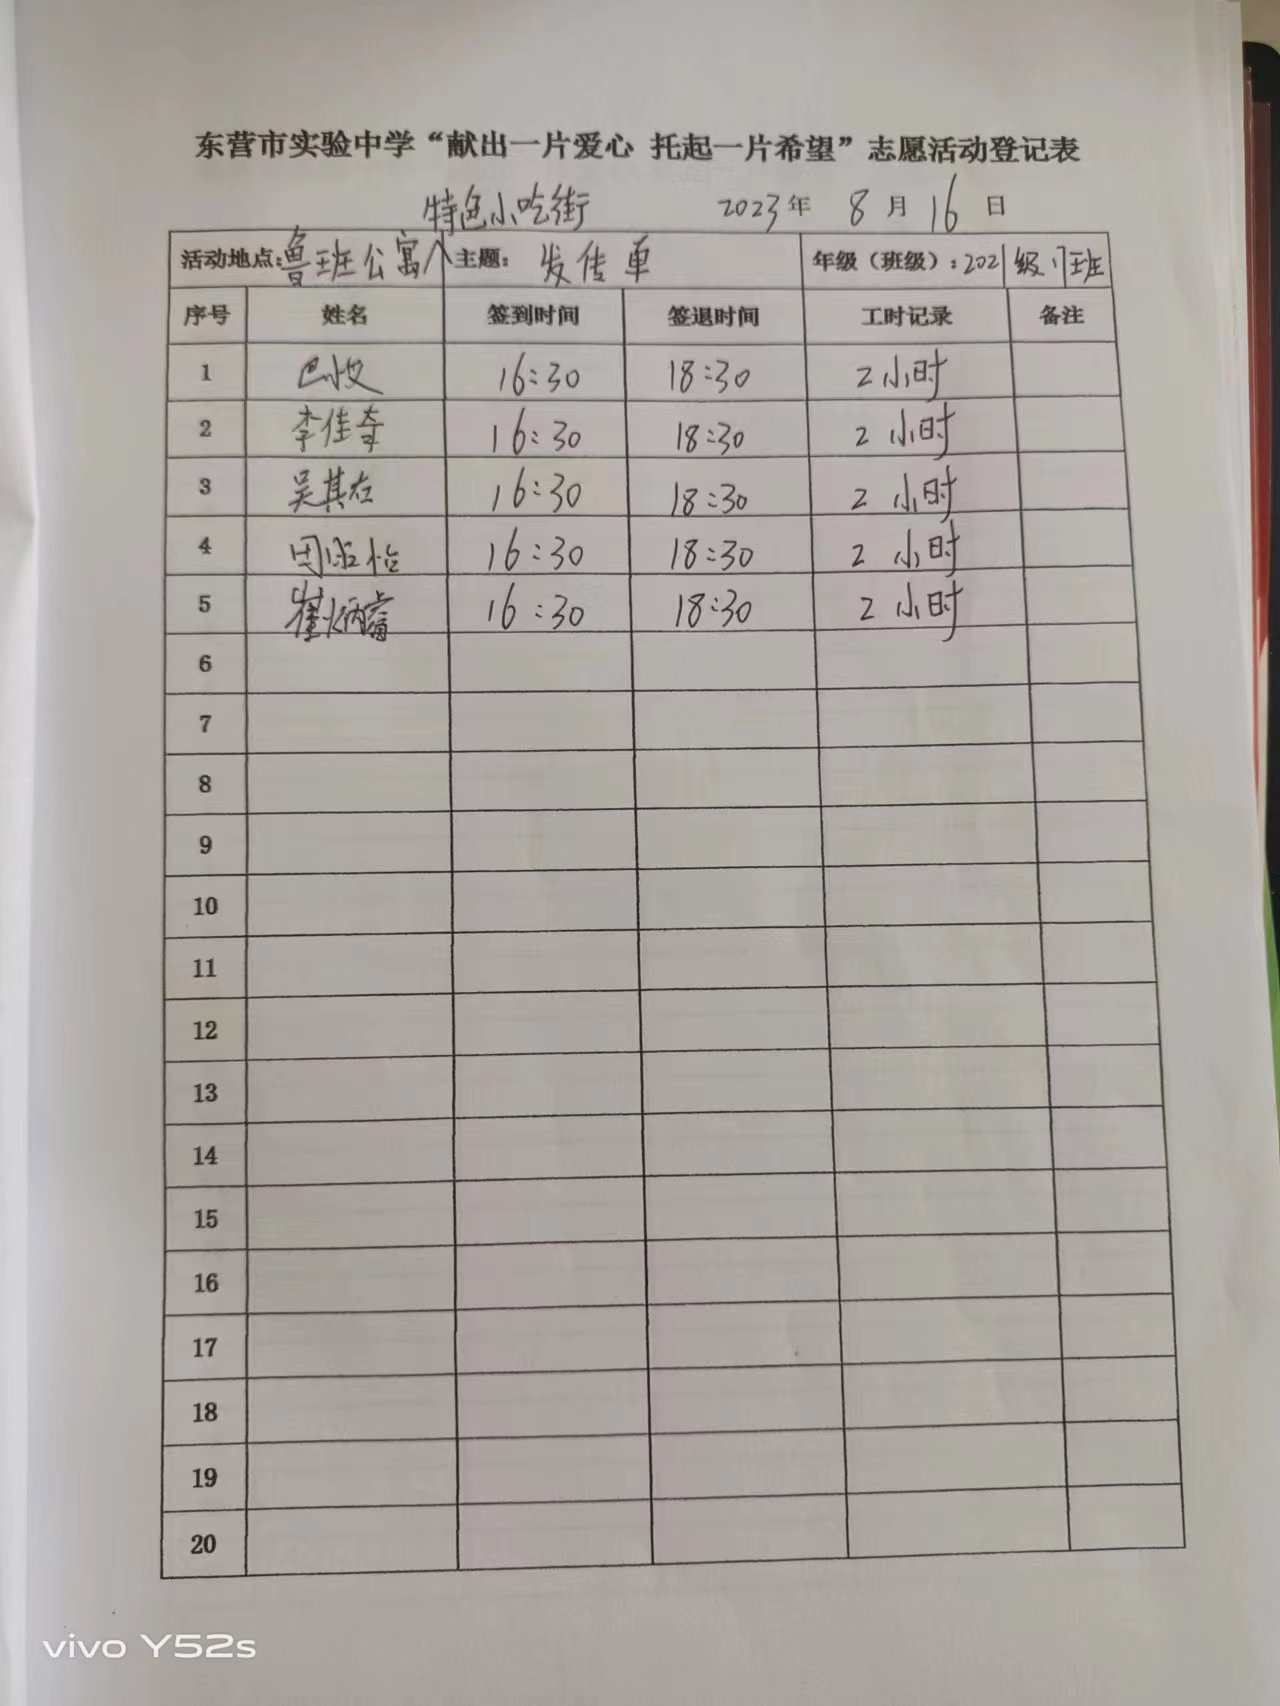 东营市实验中学“献出一片爱心 托起一片希望”志愿活动登记表
特色小吃街 2023年 8月 16日
活动地点:鲁班公寓 主题: 发传单 年级（班级）: 2021级 班
序号 姓名 签到时间 签退时间 工时记录 备注
1 16:30 18:30 2小时
2 李佳奇 16:30 18:30 2小时
3 吴其右 16:30 18:30 2小时
4 怡 16:30 18:30 2小时
5 崔炳睿 16:30 18:30 2小时
6
7
8
9
10
11
12
13
14
15
16
17
18
19
20
vivo Y52s